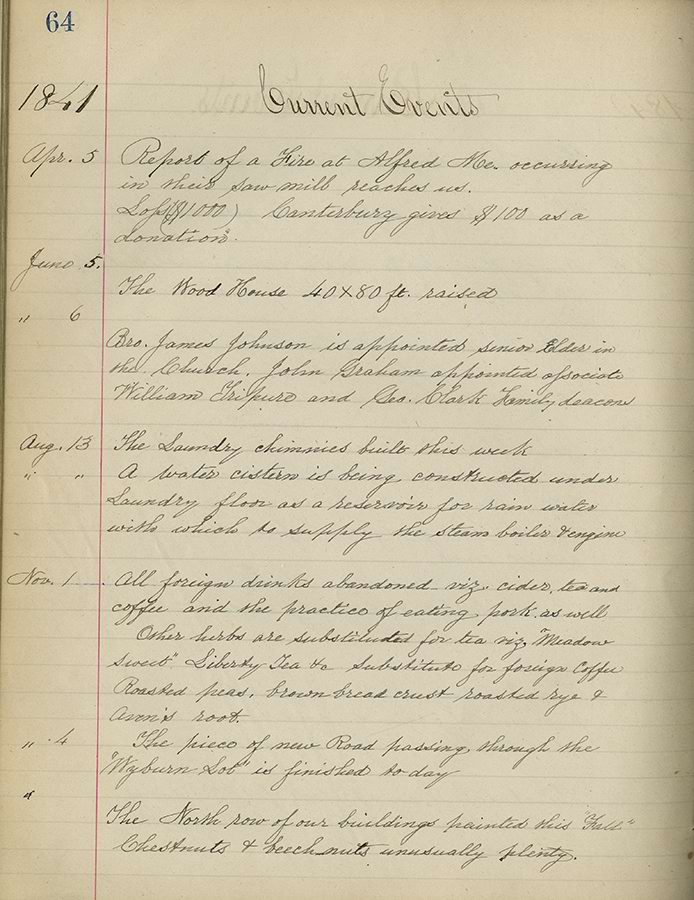 64
1841 Current Events
Apr. 5 Report of a Fire at Alfred Me. occurring
in their saw mill reaches us.
Loss ($1000) Canterbury gives $100 as a
donation".
June 5.
The Wood House 40x80 ft. raised
" 6
Bro. James Johnson is appointed senior Elder in
the Church. John Graham appointed associate
William Tripure and Geo. Clark Family deacons
Aug. 13 The Laundry chimnies built this week
" " A water cistern is being constructed under
Laundry floor as a reservoir for rain water
with which to supply the steam boiler & engine
Nov. 1 All foreign drinks abandoned viz. cider, tea and
coffee and the practice of eating pork as well
Other herbs are substituted for tea viz, "Meadow
Sweet" Liberty Tea &c substitute for foreign Coffee
Roasted peas, brown bread crust roasted rye &
Aven's root.
" 4 The piece of new Road passing through the
"Wyburn Lot" is finished to day
"
The North row of our buildings painted this "Fall"
Chestnuts & beech nuts unusually plenty.